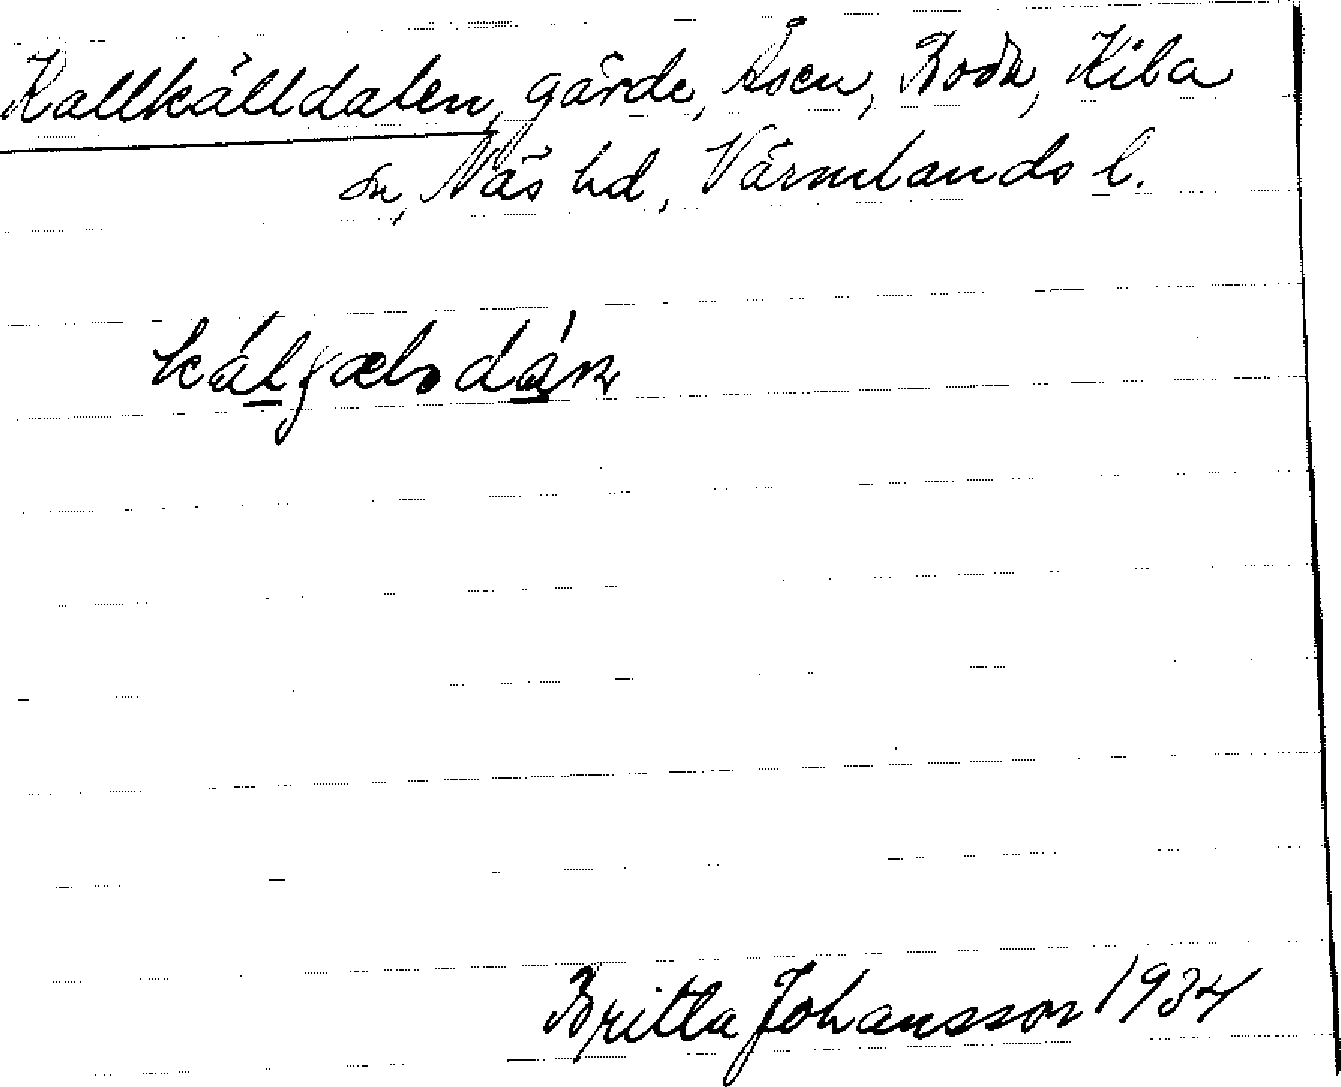 Kallkälldalen, gärde, Åsen, Boda, Kila
sn, Näs hd, Värmlands l.
Britta Johansson 1934